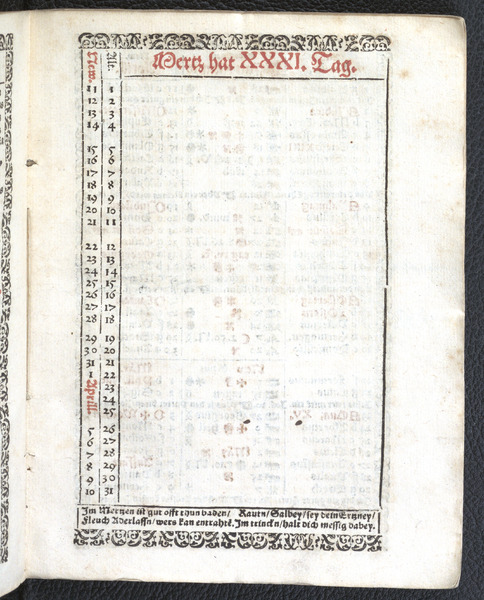 Mertz hat XXXI. Tag.
New. Alt.
11 1
12 2
13 3
14 4
15 5
16 6
17 7
18 8
19 9
20 10
21 11
22 12
23 13
24 14
25 15
26 16
27 17
28 18
29 19
30 20
31 21
1 22
Aprill. 23
24
25
5 26
6 27
7 28
8 29
9 30
10 31
Im Mertzen ist gut offt thun baden/ Rautn/Salbey/sey dein Ertzney/
Fleuch Aderlassn/wers kan entrahtē. Im trinckn/halt dich messig dabey.